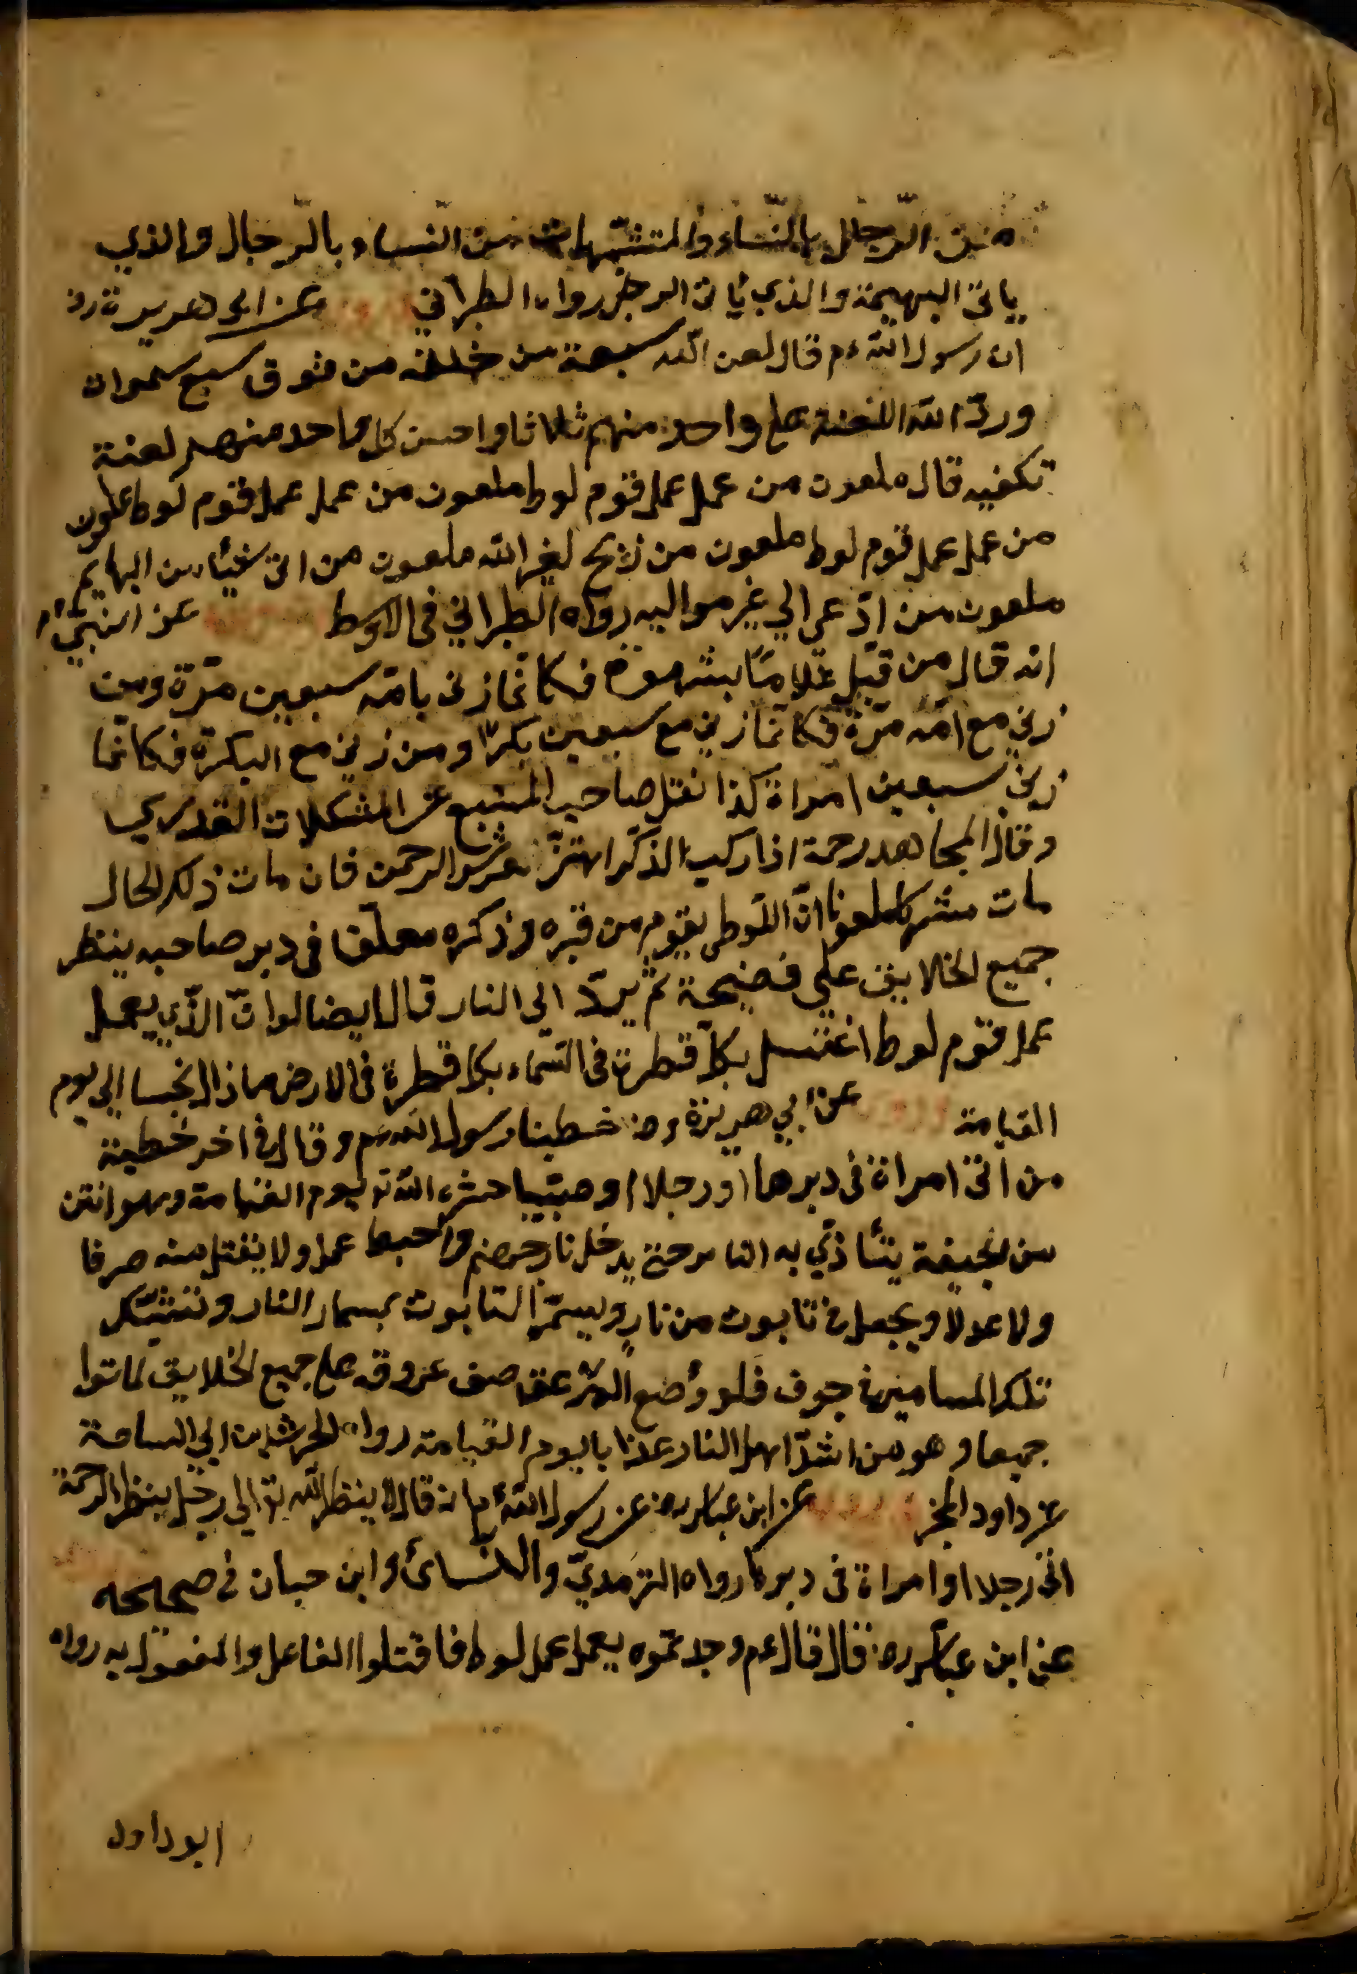 من الرّجال بالنّساء والمتشبّهات من النّساء بالرّجال والذي
ياتى البهيمة والذي يأتى الرجل رواه الطبراني وعن ابى هريرة رض
ان رسول الله عم قال لعن الله سبعة من خلقه من فوق سبع سموات
وردّ الله اللعنة على واحد منهم ثلاثا و كل واحد منهم لعنة
تكفيه قال ملعون من عمل عمل قوم لوط ملعون من عمل عمل قوم لوط ملعون
من عمل عمل قوم لوط ملعون من ذبح لغير الله ملعون من اتى شيئا من البهايم
ملعون من ادّعى الي غير مواليه رواه الطبراني فى الاوسط عن النبيّ عم
انه قال من قبّل غلامًا بشهوة فكانّما زنى بامّه سبعين مرّة ومن
زنى مع امّه مرّة فكانّما زنى مع سبعين بكرًا ومن زنى مع البكرة فكانّما
زنى سبعين امراة كذا نقل صاحب المنبع عن المشكلات القدسي
وقال المجاهد رحمة اذا ركب الذكر الذكر اهتزّ عرش الرحمن فان مات ذلك الحال
مات مشركا ملعونا انّ اللّوطى يقوم من قبره وذكره معلّق فى دبر صاحبه ينظر
جميع الخلايق على فضيحة ثم يردّ الى النار قال ايضا لو انّ الّذي يعمل
عمل قوم لوط اغتسل بكلّ قطرة فى السّماء بكل قطرة فى الارض ما زال نجسا الى يوم
القيامة عن ابي هريرة رض خطبنا رسول الله عم وقال فى اخر خطبة
من اتى امراة فى دبرها او رجلا او صبيّا حشره الله تع يوم القيامة وهو انتن
من الجيفة يتأذّي به الناس حتى يدخل نار جهنم واحبط عمله ولا يقبل منه صرفا
ولا عدلا ويجعل فى تابوت من نار ويسمّر التابوت بمسمار النار وتتشبّك
تلك المسامير فى جوف فلو وُضع عرق من عروقه على جميع الخلايق لماتوا
جميعا وهو من اشدّ اهل النار عذابا يوم القيامة رواه الحرث بن ابي اسامة
عن داود المجبر عن ابن عباس رض عن رسول الله عم انه قال لا ينظر الله تع الى رجل بنظر الرحمة
اتى رجلا او امراة فى دبرها رواه الترمذيّ والنسائ وابن حبان فى صحيحه
عن ابن عباس رض قال قال عم وجدتموه يعمل عمل لوط فاقتلوا الفاعل والمفعول به رواه
ابو داود